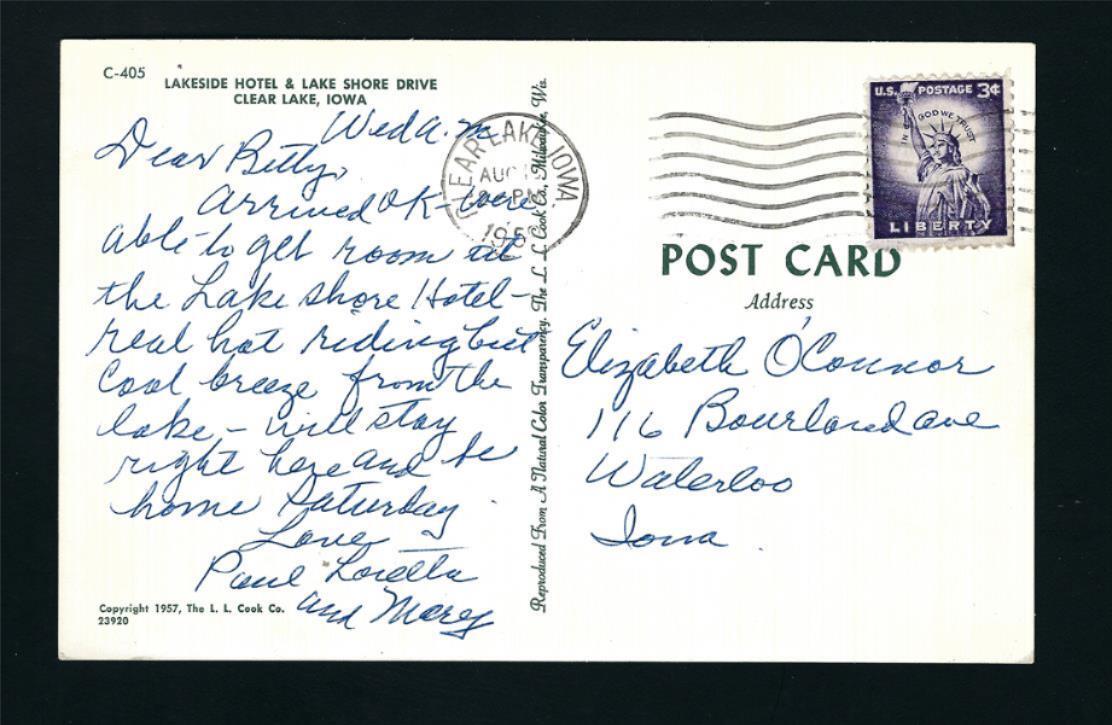 C-405
LAKESIDE HOTEL & LAKE SHORE DRIVE
CLEAR LAKE, IOWA
Wed a.m.
Dear Betty,
Arrived OK - were
able to get room at
the Lake shore Hotel -
real hot riding but
cool breeze from the
lake, - will stay
right here and be
home Saturday.
Love
Paul Loretta
and Marey
Copyright 1957, The L. L. Cook Co.
23920
Reproduced From A Natural Color Transparency. The L. L. Cook Co., Milwaukee, Wis.
CLEAR LAKE, IOWA
AUG
PM
U.S. POSTAGE 3¢
IN GOD WE TRUST
LIBERTY
POST CARD
Address
Elizabeth O'Connor
116 Bourland ave
Waterloo
Iowa.